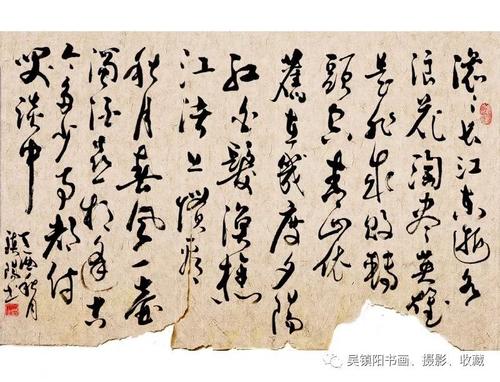 滚滚长江东逝水
浪花淘尽英雄
是非成败转
头空青山依
舊在幾度夕陽
红白髮渔樵
江渚上惯看
秋月春风一壶
浊酒喜相逢古
今多少事都付
笑谈中
酉秋月
镇阳书
吴镇阳书画、摄影、收藏